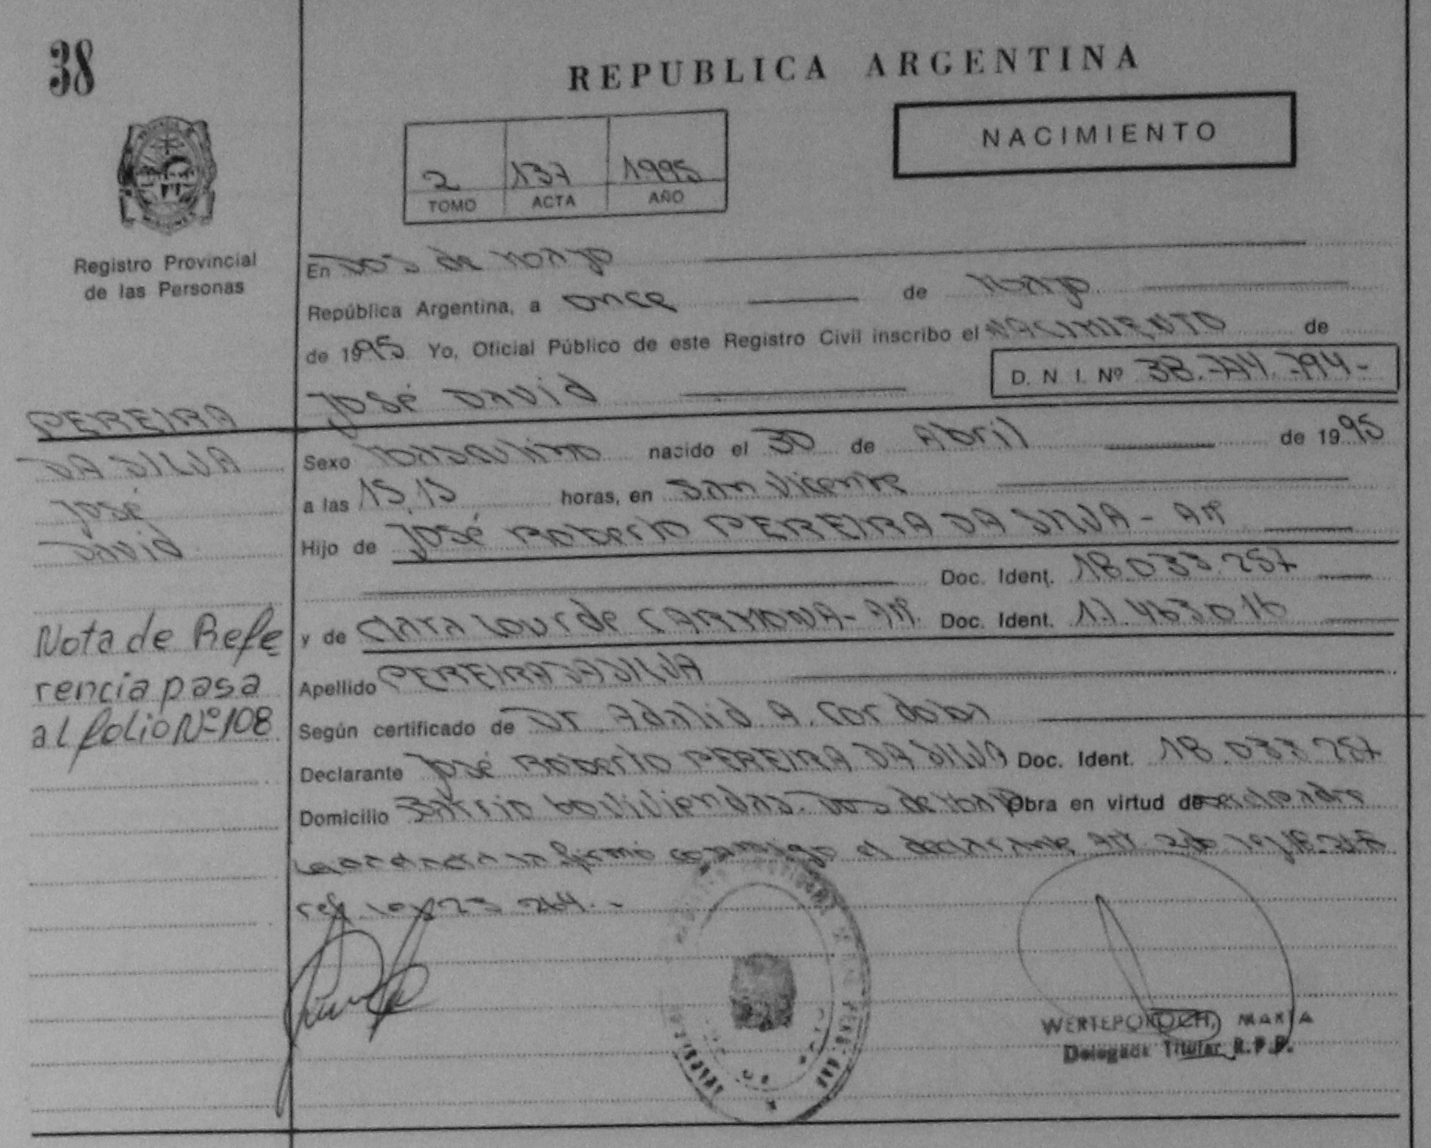 38
REPUBLICA ARGENTINA
NACIMIENTO
2 137 1995
TOMO ACTA AÑO
Registro Provincial
de las Personas
En Dos de mayo
República Argentina, a once de mayo
de 1995 Yo, Oficial Público de este Registro Civil inscribo el NACIMIENTO de
José David
D. N. I. Nº 38.774.794-
PEREIRA
DA SILVA
José
David
Sexo masculino nacido el 30 de Abril de 1995
a las 15,15 horas, en San Vicente
Hijo de José Roberto PEREIRA DA SILVA - Ar
Doc. Ident. 18.033.257
y de Clara Lourde CARMONA - Ar. Doc. Ident. 17.463016
Apellido PEREIRA DA SILVA
Según certificado de Dr. Adalid A. Cordoba
Declarante José Roberto PEREIRA DA SILVA Doc. Ident. 18.033.257
Domicilio Barrio 60 Viviendas. Dos de mayo Obra en virtud de
firmó conmigo el declarante
ref. ley 23.264.-
Nota de Refe
rencia pasa
al folio Nº 108
MARIA
Titular R.P.P.